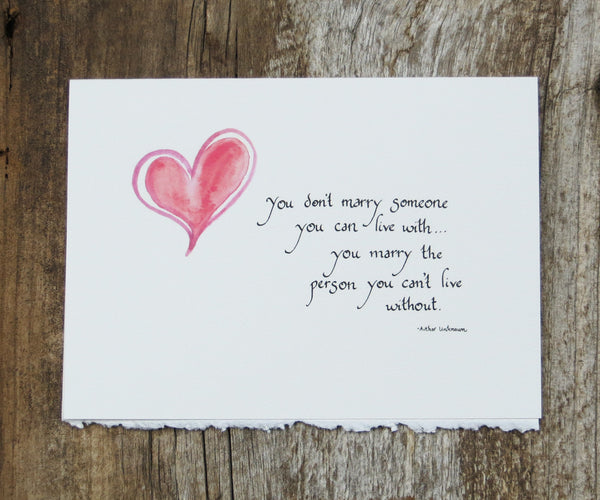 you don't marry someone
you can live with...
you marry the
person you can't live
without.
-Author Unknown